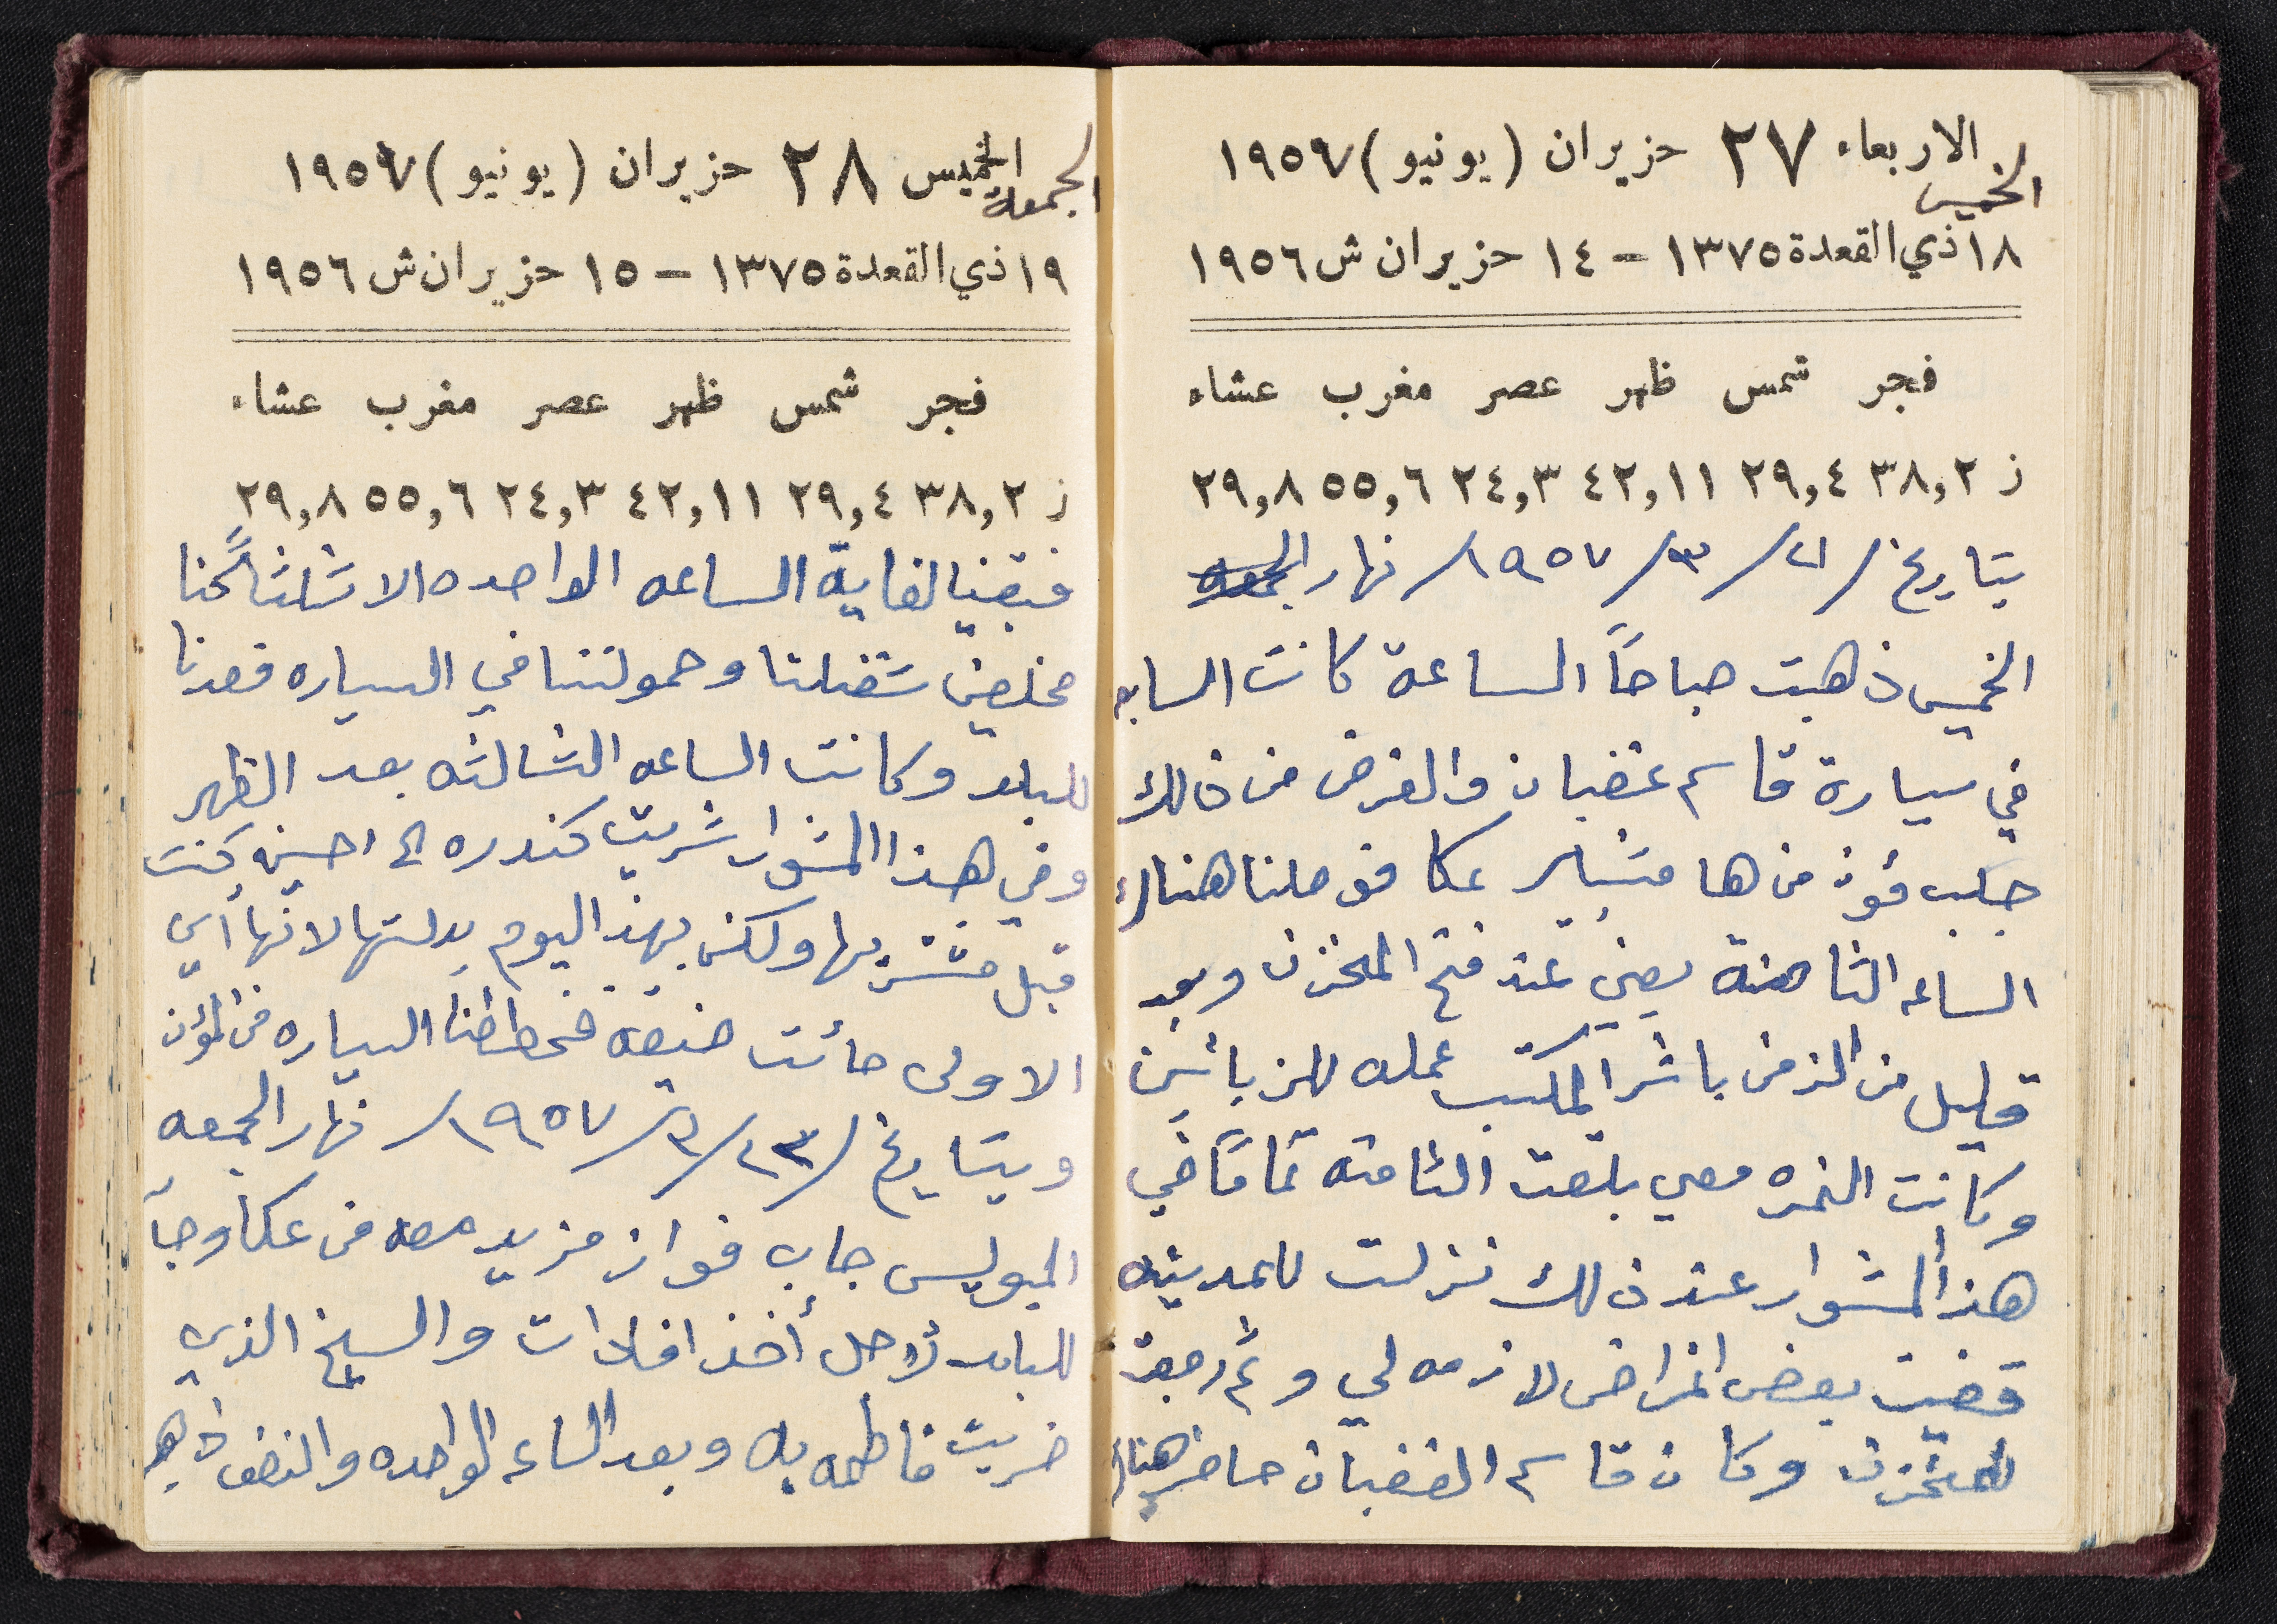 الاربعاء ٢٧ حزيران (يونيو) ١٩٥٧
الخميس
١٨ ذي القعدة ١٣٧٥ - ١٤ حزيران ش ١٩٥٦
فجر شمس ظهر عصر مغرب عشاء
ز ٣٨,٢ ٢٩,٤ ٤٢,١١ ٢٤,٣ ٥٥,٦ ٢٩,٨
بتاريخ /٢١/٣/١٩٥٧/ نهار الجمعه
الخميس ذهبت صباحاً الساعة كانت السابعه
في سيارة قاسم غضبان والغرض من ذلك
جلب مؤن من هامشبير عكا فوصلنا هناك
الساعه الثامنة يعني عند فتح المخزن وبعد
قليل من الزمن باشر المكتب عمله للزبائين
وكانت النمره معي بلغت الثامنه تماماً في
هذا المشوار عند ذلك نزلت للمدينه
قضيت بعض اغراض لازمه لي وثم رجعت
للمخزن وكان قاسم الغضبان حاضر هناك
الخميس ٢٨ حزيران (يونيو) ١٩٥٧
الجمعة
١٩ ذي القعدة ١٣٧٥ - ١٥ حزيران ش ١٩٥٦
فجر شمس ظهر عصر مغرب عشاء
ز ٣٨,٢ ٢٩,٤ ٤٢,١١ ٢٤,٣ ٥٥,٦ ٢٩,٨
فبقينا لغاية الساعه الواحده الا ثلثاً كنا
مخلصين شغلتنا وحمولتنا في السياره فعدنا
للبلد وكانت الساعه الثالثه بعد الظهر
وفي هذا المشوار شريت كندره الى احسين كنت
قبل مشتريها ولكن بهذا اليوم بدلتها لانها أي
الاولى جائت ضيقه فحططنا السياره من المؤن
وبتاريخ /٢٢/٣/١٩٥٧/ نهار الجمعه
البوليس جاب فواز مزيد معه من عكا وجاء
للبلد لأجل أخذ افادات والسيخ الذي
ضربت فاطمه به وبعد الساعه الواحده والنصف